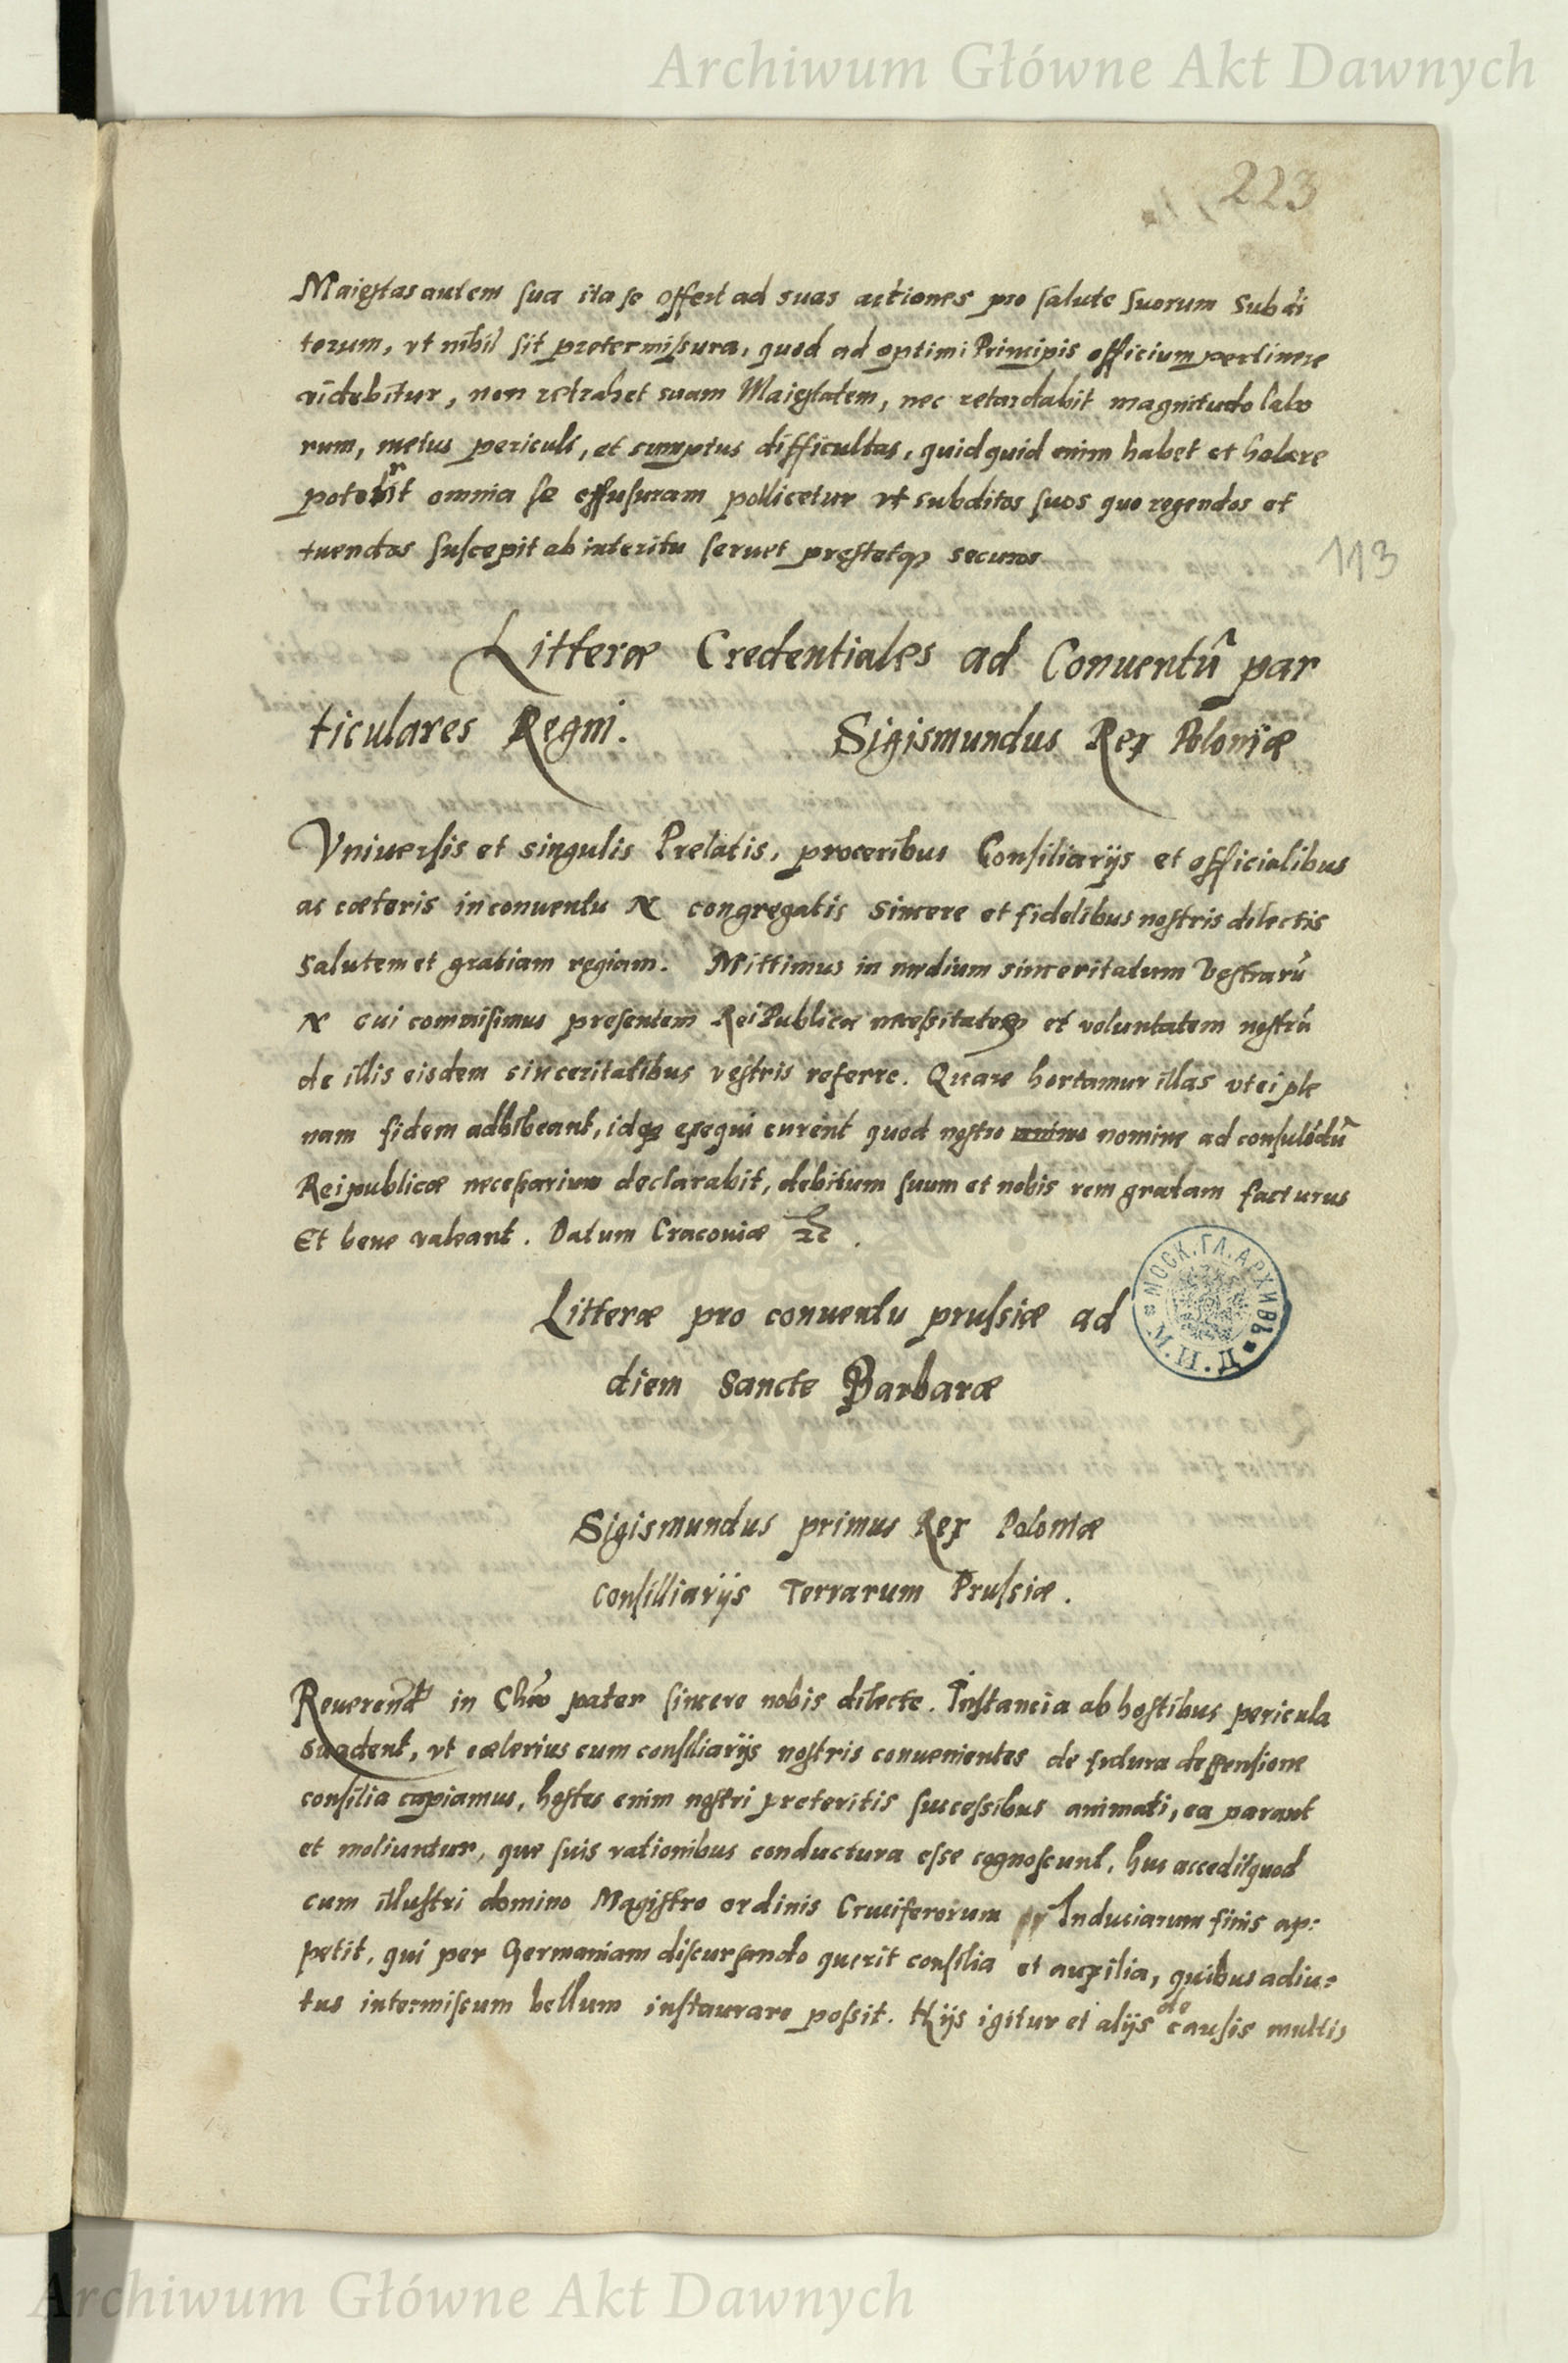 Archiwum Główne Akt Dawnych
223
Maiestas autem sua ita se offert ad suas actiones pro salute suorum subdi
torum, vt nihil sit pretermissura, quod ad optimi Principis officium pertinere
videbitur, non retrahet suam Maiestatem, nec retardabit magnitudo labo
rum, metus periculi, et sumptus difficultas, quidquid enim habet et habere
poterit omnia se effusuram pollicetur vt subditos suos quo regendos et
tuendos suscepit ab interitu seruet prestetq3 securos
113
Litteræ Credentiales ad Conuentũ par
ticulares Regni. Sigismundus Rex Poloniæ
Vniuersis et singulis Prelatis, proceribus Consiliarijs et officialibus
ac cæteris in conuentu N congregatis sincere et fidelibus nostris dilectis
salutem et gratiam regiam. Mittimus in medium sinceritatum vestrarũ
N cui commisimus presentem Rei Publicæ necessitatem et voluntatem nostrã
de illis eisdem sinceritatibus vestris referre. Quare hortamur illas vt ei ple
nam fidem adhibeant, idq3 exequi curent quod nostro nomine ad consulẽdũ
Reipublicæ necessarium declarabit, debitum suum et nobis rem gratam facturus
Et bene valeant. Datum Cracouiæ
Litteræ pro conuentu prussiæ ad
diem Sancte Barbaræ
МОСК. ГЛ. АРХИВЪ М. И. Д.
Sigismundus primus Rex Poloniæ
Consilliarijs Terrarum Prussiæ.
Reuerend in Chro pater sincere nobis dilecte. Instancia ab hostibus pericula
suadent, vt cælerius cum consiliarijs nostris conuenientes de futura deffensione
consilia capiamus, hostes enim nostri preteritis successibus animati, ea parant
et moliuntur, que suis rationibus conductura esse cognoscunt, huc accedit quod
cum illustri domino Magistro ordinis Cruciferorum Induciarum finis ap:
petit, qui per Germaniam discursando querit consilia et auxilia, quibus adiu:
tus intermissum bellum instaurare possit. Hijs igitur et alijs de causis multis
Archiwum Główne Akt Dawnych